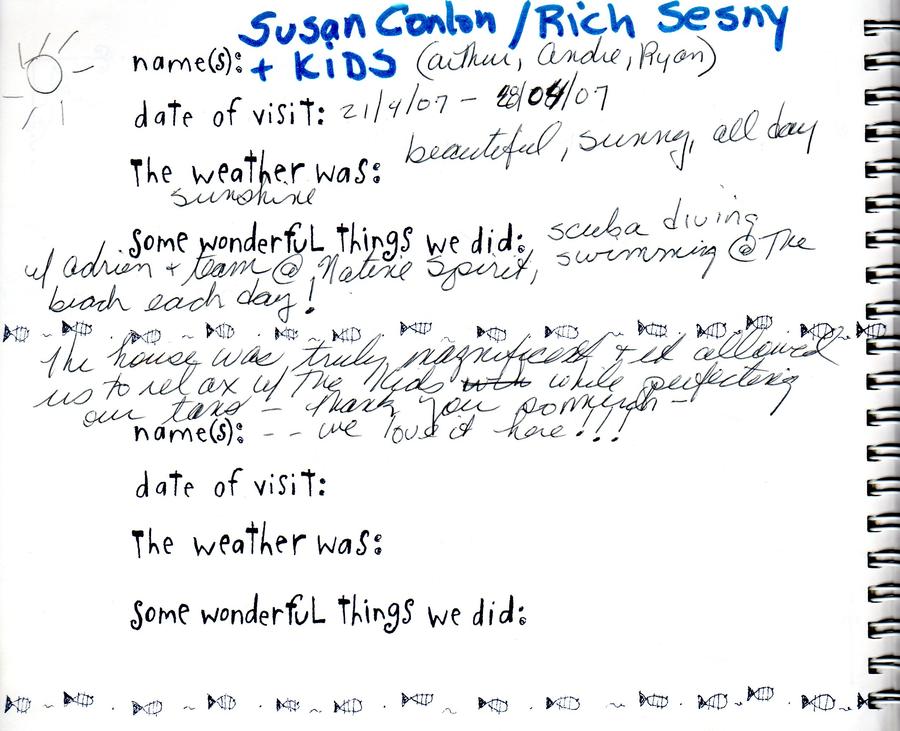 Susan Conlon / Rich Sesny
name(s): + KiDS (arthur, andre, Ryan)
date of visit: 21/4/07 - 28/04/07
The weather was: beautiful, sunny, all day
sunshine
some wonderfuL things we did: scuba diving
w/ adrien + team @ Native Spirit, swimming @ The
beach each day!
The house was truly magnificent & it allowed
us to relax w/ The Kids with while perfecting
our tans - Thank you somuch -
name(s): -- we love it here!!!
date of visit:
The weather was:
some wonderfuL things we did: